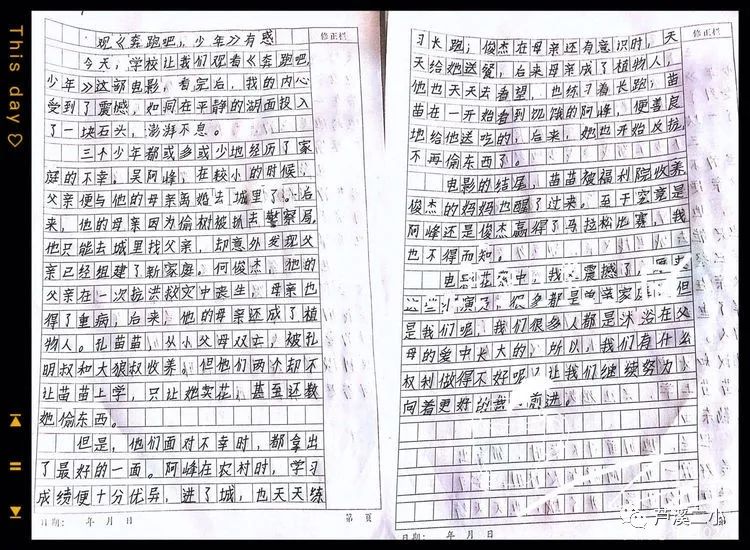 This day ♡
修正栏
观《奔跑吧,少年》有感
今天,学校让我们观看《奔跑吧
少年》这部电影,看完后,我的内心
受到了震撼,如同在平静的湖面投入
了一块石头,澎湃不息。
三个少年都或多或少地经历了家
庭的不幸。吴阿峰,在校小的时候,
父亲便与他的母亲离婚去城里了。后
来,他的母亲因为偷树被抓去警察局
他只能去城里找父亲,却意外发现父
亲已经组建了新家庭。何俊杰,他的
父亲在一次抗洪救灾中丧生,母亲也
得了重病,后来,他的母亲还成了植
物人。孔苗苗,从小父母双亡,被孔
明叔和大狼叔收养。但他们两个却不
让苗苗上学,只让她卖花,甚至还教
她偷东西。
但是,他们面对不幸时,都拿出
了最好的一面。阿峰在农村时,学习
成绩便十分优异,进了城,也天天练
日期: 年 月 日
第 页
修正栏
习长跑;俊杰在母亲还有意识时,天
天给她送餐,后来母亲成了植物人,
他也天天去看望,也练习着长跑;苗
苗在一开始看到饥饿的阿峰,便善良
地给他送吃的,后来,她也开始反抗
不再偷东西了。
电影的结尾,苗苗被福利院收养
俊杰的妈妈也醒了过来。至于究竟是
阿峰还是俊杰赢得了马拉松比赛,我
也不得而知。
电影 中,我 震撼了,
这些小演员,很多都是 家庭 但
是我们呢,我们很多人都是沐浴在父
母的爱中长大的,所以,我们有什么
权利做得不好呢 让我们继续努力
向着更好的 前进。
日期: 年 月 日
芦溪二小